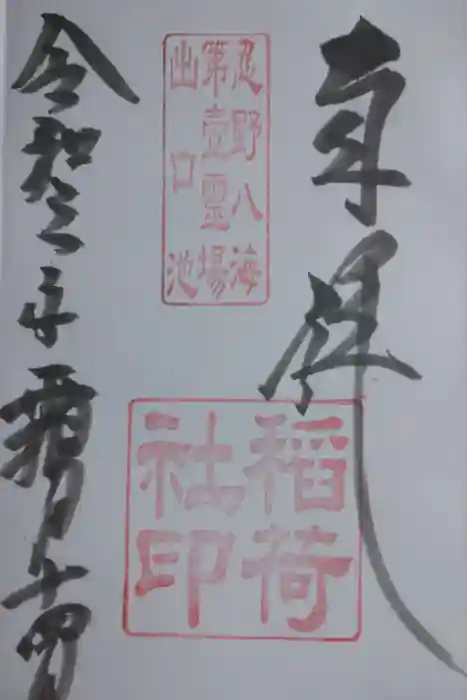 奉拝
忍野八海
第壹霊場
出口池
稻荷
社印
令和三年霜月十四日